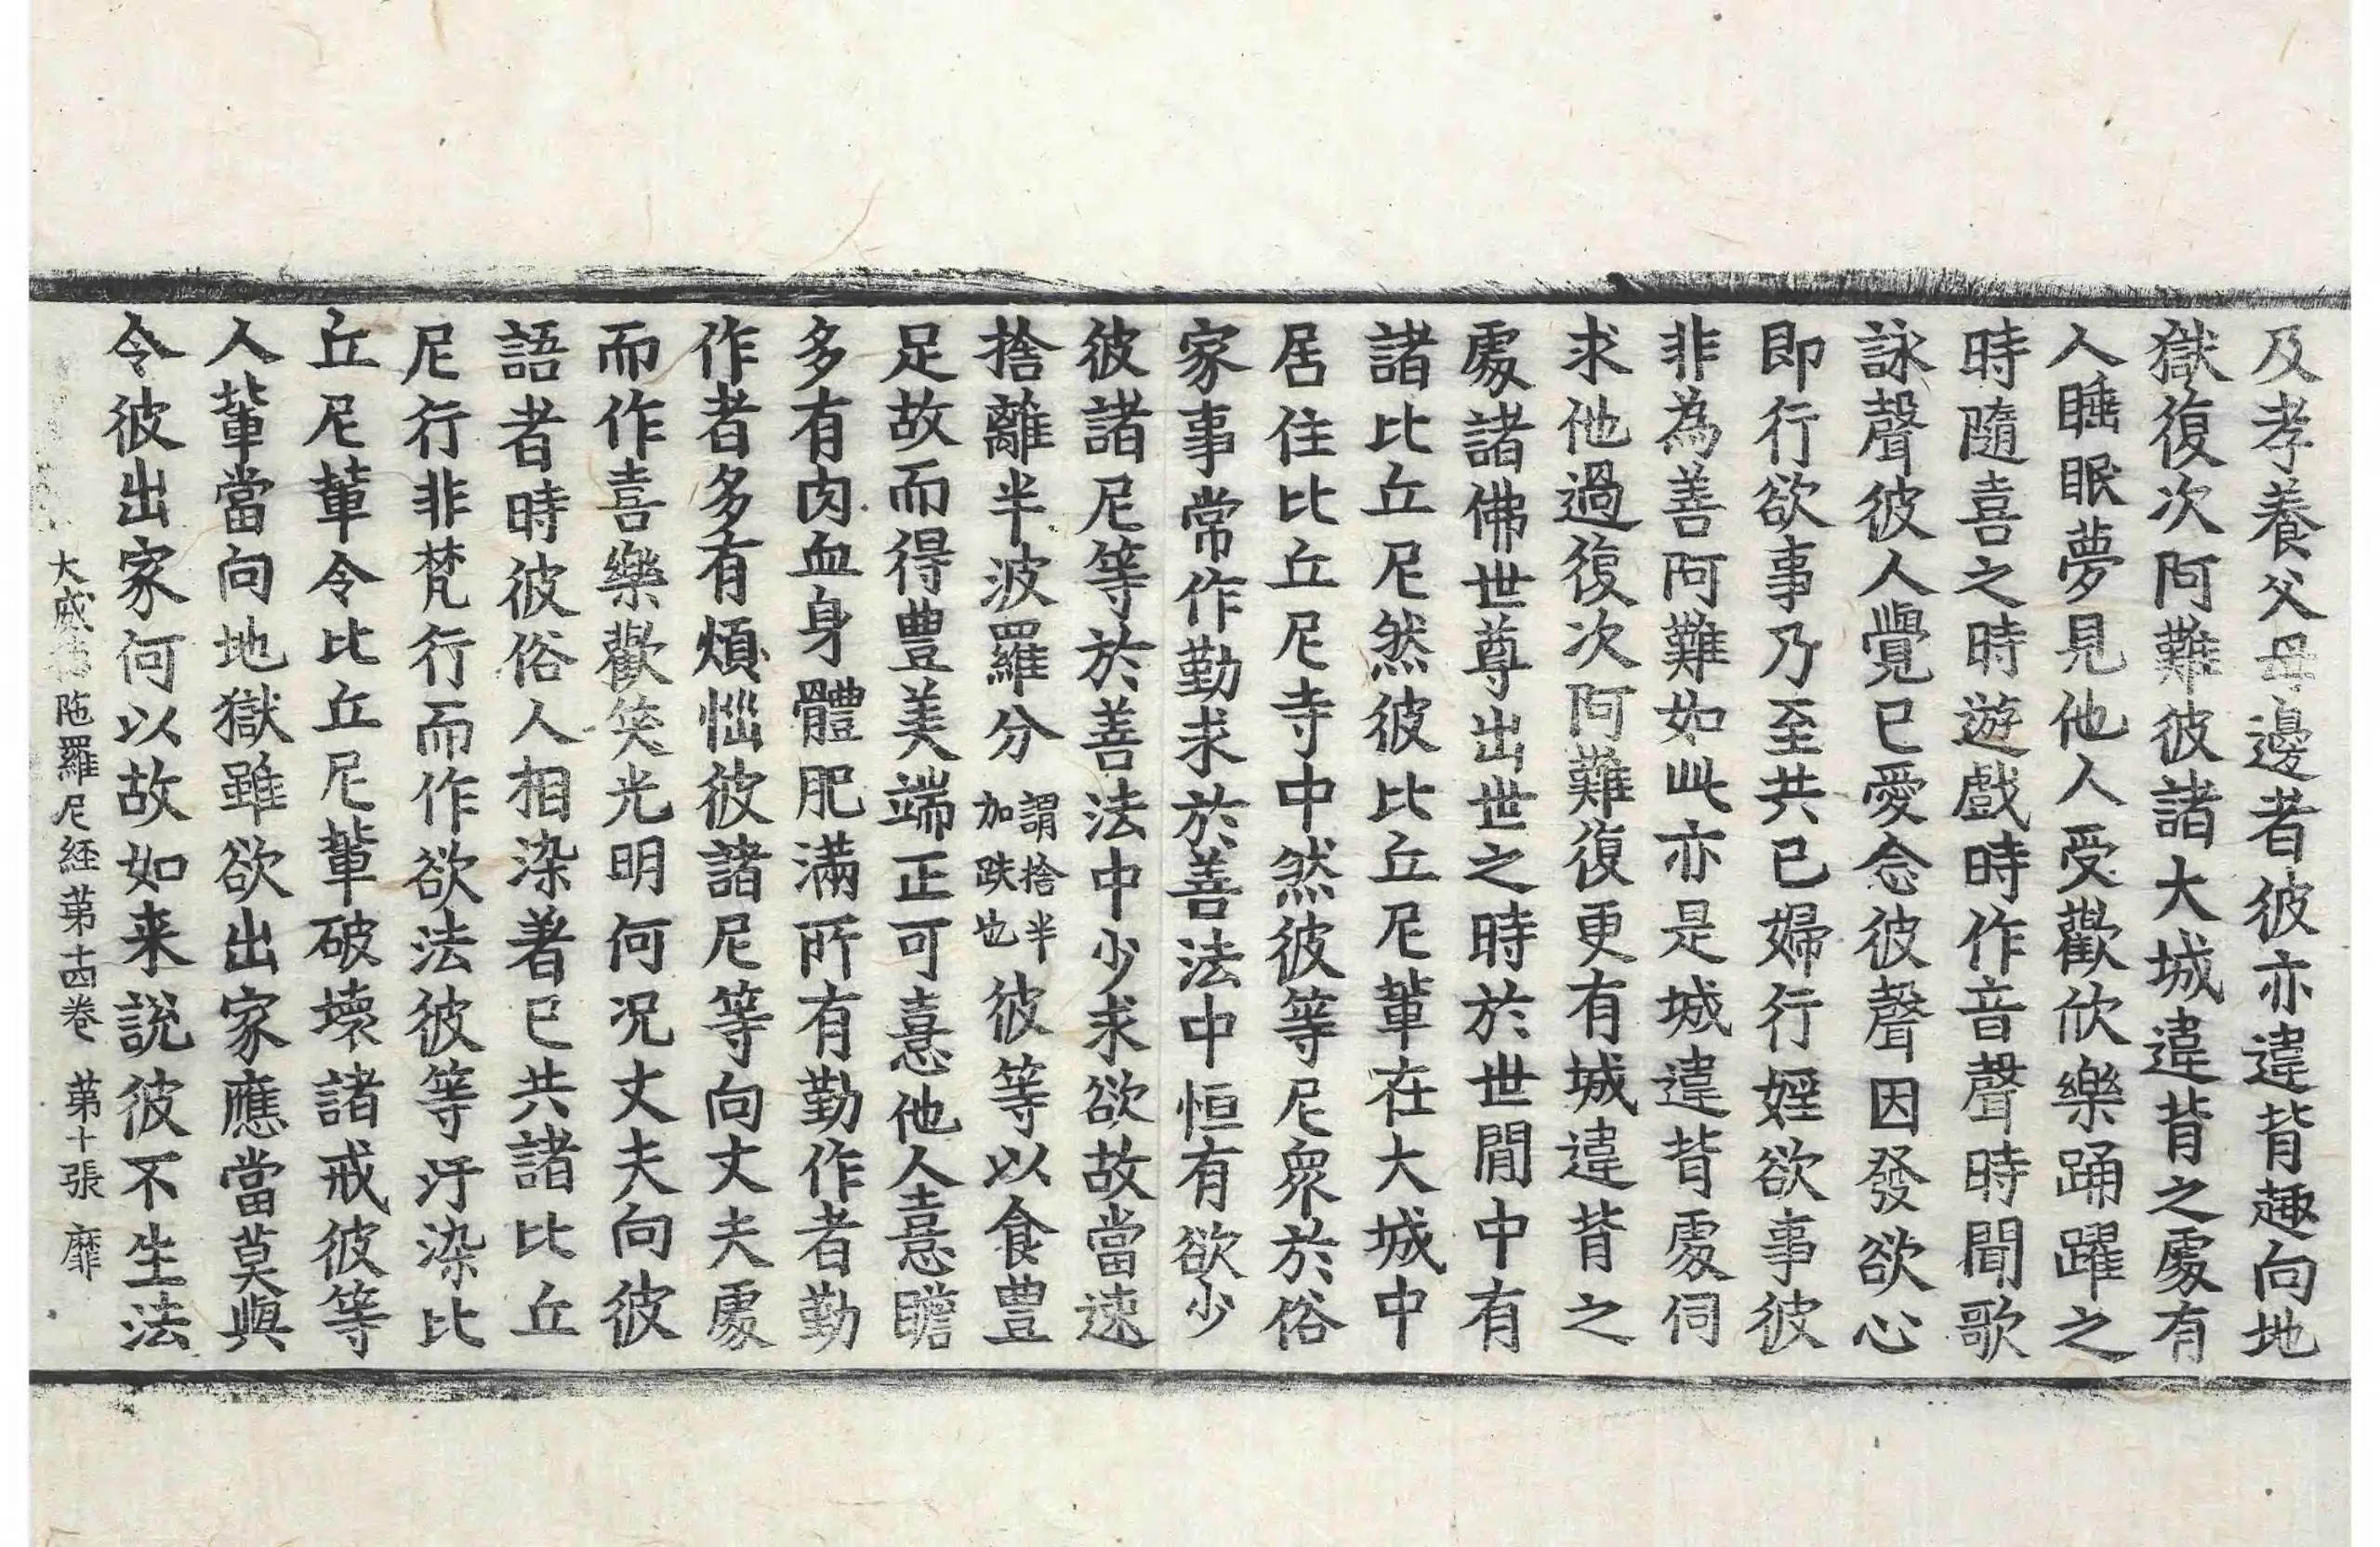 及孝養父母邊者彼亦違背趣向地
獄復次阿難彼諸大城違背之處有
人睡眠夢見他人受歡欣樂踊躍之
時隨喜之時遊戲時作音聲時聞歌
詠聲彼人覺已愛念彼聲因發欲心
即行欲事乃至共已婦行婬欲事彼
非為善阿難如此亦是城違背處伺
求他過復次阿難復更有城違背之
處諸佛世尊出世之時於世間中有
諸比丘尼然彼比丘尼輩在大城中
居住比丘尼寺中然彼等尼衆於俗
家事常作勤求於善法中恒有欲少
彼諸尼等於善法中少求欲故當速
捨離半波羅分謂捨半加趺也彼等以食豊
足故而得豊美端正可憙他人憙瞻
多有肉血身體肥滿所有勤作者勤
作者多有煩惱彼諸尼等向丈夫處
而作喜樂歡笑光明何況丈夫向彼
語者時彼俗人相染著已共諸比丘
尼行非梵行而作欲法彼等汙染比
丘尼輩令比丘尼輩破壞諸戒彼等
人輩當向地獄雖欲出家應當莫與
令彼出家何以故如来說彼不生法
大威德陁羅尼経第十四卷 第十張 靡